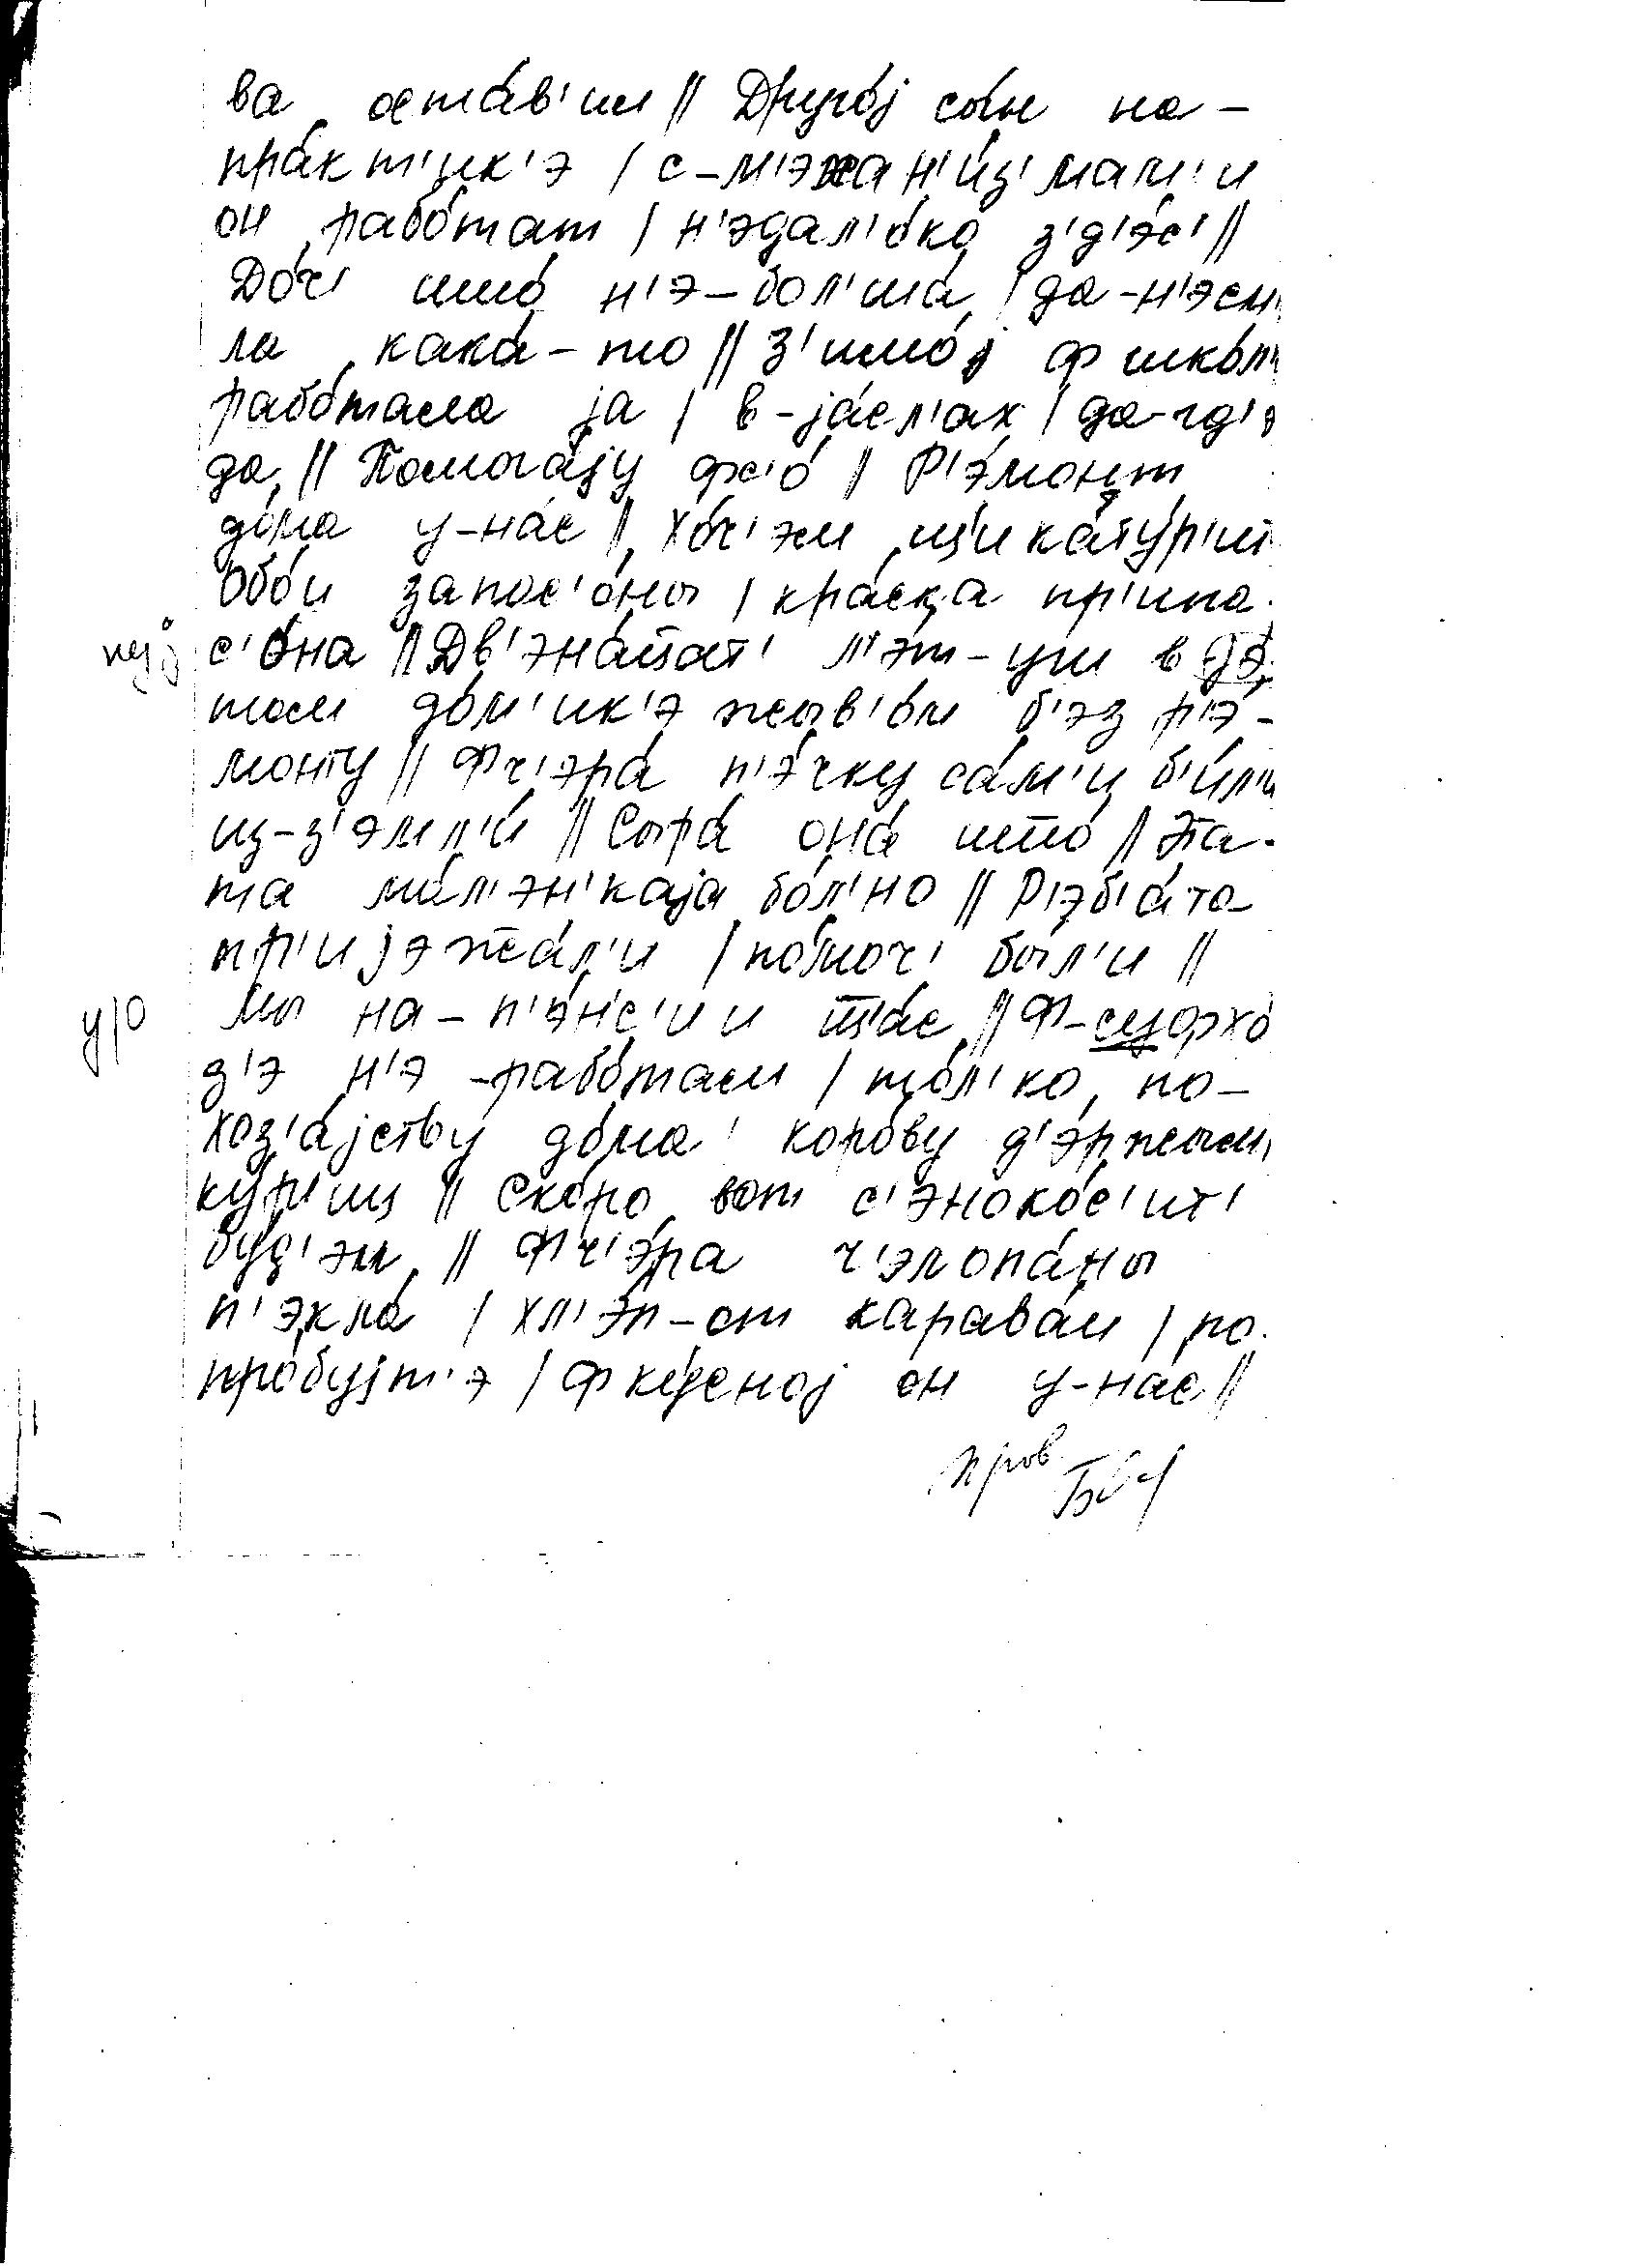 ва оста́в'им // Друго́j сы́н на-
пра́кт'ик'э / с-м'эхан'и́з'мам'и
он рабо́тат / н'эдал'о́ко з'д'э́с' //
До́ч' ишо́ н'э-бол'ша́ / да-н'эсм'
ла кака́-то // З'имо́j ф шко́л'
рабо́тала ja / в-jа́сл'ах / да-гд'э
да // Помога́jу фс'о́ // Р'э́монт
до́ма у-на́с // Хо́ч'эм
обо́и запас'о́ны / кра́ска пр'ипа
с'о́на // Дв'эна́тцат' л'э́т-уш в
том до́м'ик'э жыв'о́м б'эз р'э́-
монту // Фч'эра́ п'э́чку са́м'и б'и́л'и
из-з'эмл'и́ // Сыра́ она́ ишо́ // Эта-
та ма́л'эн'каjа бо́л'но // Р'эб'а́та
пр'иjэжа́л'и / по́моч' бы́л'и //
мы на-п'э́нс'ии шас // Ф-суфхо́
з'э н'э-рабо́там / то́л'ко по-
хоз'а́jству до́ма коро́ву д'э́ржым
ку́р'иц // Ско́ро вот с'энокос'ит'
бу́д'эм // Фч'эра́ ч'элпа́ны
п'экла́ / хл'э́п-от карава́м / по
про́буjт'э / фку́сноj он у-на́с //
пров